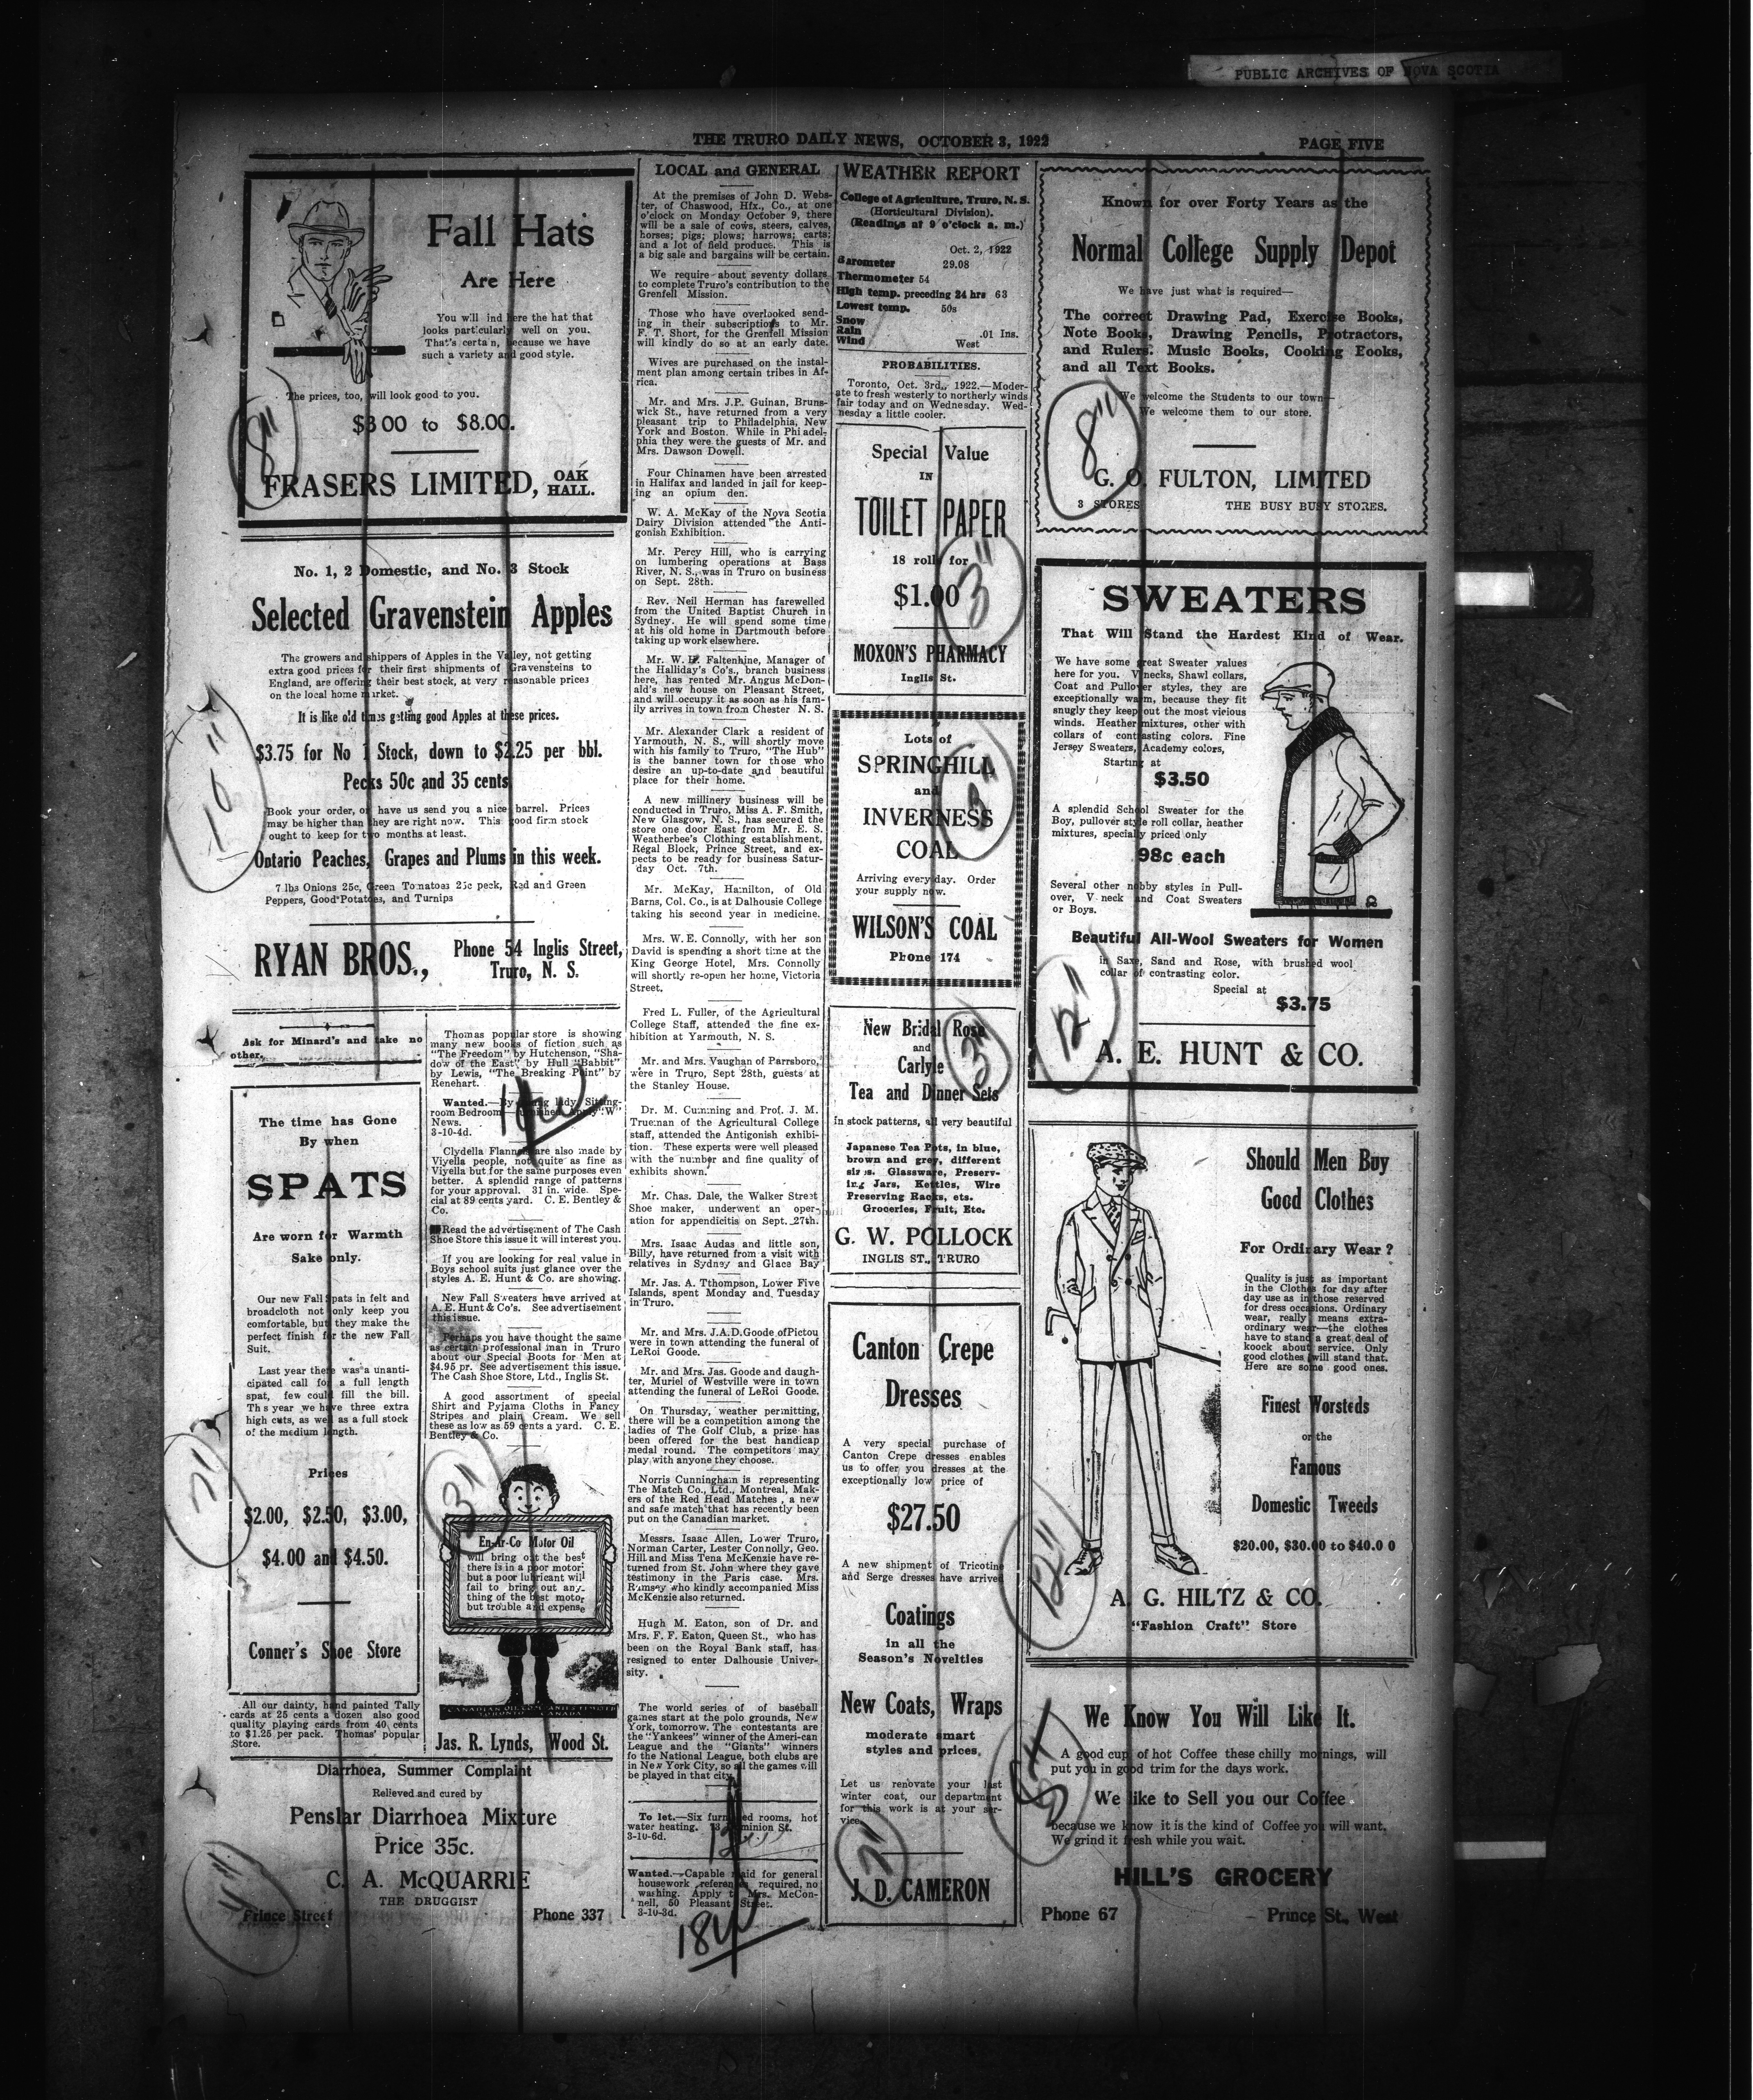 PUBLIC ARCHIVES OF NOVA SCOTIA
THE TRURO DAILY NEWS, OCTOBER 3, 1922
PAGE FIVE
Fall Hats
Are Here
You will ind here the hat that
looks particularly well on you.
That's certa n, because we have
such a variety and good style.
The prices, too, will look good to you.
$3 00 to $8.00.
FRASERS LIMITED, OAK
HALL.
8"
No. 1, 2 Domestic, and No. 3 Stock
Selected Gravenstein Apples
The growers and shippers of Apples in the Valley, not getting
extra good prices for their first shipments of Gravensteins to
England, are offering their best stock, at very reasonable prices
on the local home market.
It is like old times getting good Apples at these prices.
$3.75 for No 1 Stock, down to $2.25 per bbl.
Pecks 50c and 35 cents
Book your order, or have us send you a nice barrel. Prices
may be higher than they are right now. This good firm stock
ought to keep for two months at least.
Ontario Peaches, Grapes and Plums in this week.
7 lbs Onions 25c, Green Tomatoes 25c peck, Red and Green
Peppers, Good Potatoes, and Turnips
RYAN BROS.,
Phone 54 Inglis Street,
Truro, N. S.
10"
Ask for Minard's and take no
other.
The time has Gone
By when
SPATS
Are worn for Warmth
Sake only.
Our new Fall Spats in felt and
broadcloth not only keep you
comfortable, but they make the
perfect finish for the new Fall
Suit.
Last year there was a unanti-
cipated call for a full length
spat, few could fill the bill.
Th s year we have three extra
high cuts, as well as a full stock
of the medium length.
Prices
$2.00, $2.50, $3.00,
$4.00 and $4.50.
Conner's Shoe Store
7"
All our dainty, hand painted Tally
cards at 25 cents a dozen also good
quality playing cards from 40 cents
to $1.25 per pack. Thomas' popular
Store.
Thomas popular store is showing
many new books of fiction such as
"The Freedom" by Hutchenson, "Sha-
dow of the East" by Hull "Babbit"
by Lewis, "The Breaking Point" by
Renehart.
Wanted.—By young lady, Sitting-
room Bedroom— furnished Apply "W"
News.
3-10-4d.
Clydella Flannels are also made by
Viyella people, not quite as fine as
Viyella but for the same purposes even
better. A splendid range of patterns
for your approval. 31 in. wide. Spe-
cial at 89 cents yard. C. E. Bentley &
Co.
Read the advertisement of The Cash
Shoe Store this issue it will interest you.
If you are looking for real value in
Boys school suits just glance over the
styles A. E. Hunt & Co. are showing.
New Fall Sweaters have arrived at
A. E. Hunt & Co's. See advertisement
this issue.
Perhaps you have thought the same
as certain professional man in Truro
about our Special Boots for Men at
$4.95 pr. See advertisement this issue.
The Cash Shoe Store, Ltd., Inglis St.
A good assortment of special
Shirt and Pyjama Cloths in Fancy
Stripes and plain Cream. We sell
these as low as 59 cents a yard. C. E.
Bentley & Co.
3"
En-Ar-Co Motor Oil
will bring out the best
there is in a poor motor
but a poor lubricant will
fail to bring out any-
thing of the best motor
but trouble and expense
Jas. R. Lynds, Wood St.
Diarrhoea, Summer Complaint
Relieved and cured by
Penslar Diarrhoea Mixture
Price 35c.
C. A. McQUARRIE
THE DRUGGIST
Prince Street
Phone 337
4"
LOCAL and GENERAL
At the premises of John D. Webs-
ter, of Chaswood, Hfx., Co., at one
o'clock on Monday October 9, there
will be a sale of cows, steers, calves,
horses; pigs; plows; harrows; carts;
and a lot of field produce. This is
a big sale and bargains will be certain.
We require about seventy dollars
to complete Truro's contribution to the
Grenfell Mission.
Those who have overlooked send-
ing in their subscriptions to Mr.
F. T. Short, for the Grenfell Mission
will kindly do so at an early date.
Wives are purchased on the instal-
ment plan among certain tribes in Af-
rica.
Mr. and Mrs. J.P. Guinan, Bruns-
wick St., have returned from a very
pleasant trip to Philadelphia, New
York and Boston. While in Phi adel-
phia they were the guests of Mr. and
Mrs. Dawson Dowell.
Four Chinamen have been arrested
in Halifax and landed in jail for keep-
ing an opium den.
W. A. McKay of the Nova Scotia
Dairy Division attended the Anti-
gonish Exhibition.
Mr. Percy Hill, who is carrying
on lumbering operations at Bass
River, N. S., was in Truro on business
on Sept. 28th.
Rev. Neil Herman has farewelled
from the United Baptist Church in
Sydney. He will spend some time
at his old home in Dartmouth before
taking up work elsewhere.
Mr. W. H. Faltenhine, Manager of
the Halliday's Co's., branch business
here, has rented Mr. Angus McDon-
ald's new house on Pleasant Street,
and will occupy it as soon as his fam-
ily arrives in town from Chester N. S.
Mr. Alexander Clark a resident of
Yarmouth, N. S., will shortly move
with his family to Truro, "The Hub"
is the banner town for those who
desire an up-to-date and beautiful
place for their home.
A new millinery business will be
conducted in Truro, Miss A. F. Smith,
New Glasgow, N. S., has secured the
store one door East from Mr. E. S.
Weatherbee's Clothing establishment,
Regal Block, Prince Street, and ex-
pects to be ready for business Satur-
day Oct. 7th.
Mr. McKay, Hamilton, of Old
Barns, Col. Co., is at Dalhousie College
taking his second year in medicine.
Mrs. W. E. Connolly, with her son
David is spending a short time at the
King George Hotel, Mrs. Connolly
will shortly re-open her home, Victoria
Street.
Fred L. Fuller, of the Agricultural
College Staff, attended the fine ex-
hibition at Yarmouth, N. S.
Mr. and Mrs. Vaughan of Parrsboro,
were in Truro, Sept 28th, guests at
the Stanley House.
Dr. M. Cumming and Prof. J. M.
Trueman of the Agricultural College
staff, attended the Antigonish exhibi-
tion. These experts were well pleased
with the number and fine quality of
exhibits shown.
Mr. Chas. Dale, the Walker Street
Shoe maker, underwent an oper-
ation for appendicitis on Sept. 27th.
Mrs. Isaac Audas and little son,
Billy, have returned from a visit with
relatives in Sydney and Glace Bay
Mr. Jas. A. Tthompson, Lower Five
Islands, spent Monday and Tuesday
in Truro.
Mr. and Mrs. J.A.D.Goode ofPictou
were in town attending the funeral of
LeRoi Goode.
Mr. and Mrs. Jas. Goode and daugh-
ter, Muriel of Westville were in town
attending the funeral of LeRoi Goode.
On Thursday, weather permitting,
there will be a competition among the
ladies of The Golf Club, a prize has
been offered for the best handicap
medal round. The competitors may
play with anyone they choose.
Norris Cunningham is representing
The Match Co., Ltd., Montreal, Mak-
ers of the Red Head Matches , a new
and safe match that has recently been
put on the Canadian market.
Messrs. Isaac Allen, Lower Truro,
Norman Carter, Lester Connolly, Geo.
Hill and Miss Tena McKenzie have re-
turned from St. John where they gave
testimony in the Paris case. Mrs.
Ramsay who kindly accompanied Miss
McKenzie also returned.
Hugh M. Eaton, son of Dr. and
Mrs. F. F. Eaton, Queen St., who has
been on the Royal Bank staff, has
resigned to enter Dalhousie Univer-
sity.
The world series of of baseball
games start at the polo grounds, New
York, tomorrow. The contestants are
the "Yankees" winner of the Ameri-can
League and the "Giants" winners
fo the National League, both clubs are
in New York City, so all the games will
be played in that city.
To let.—Six furnished rooms, hot
water heating. Dominion St.
3-10-6d.
Wanted.—Capable maid for general
housework references required, no
washing. Apply to Mrs. McCon-
nell, 50 Pleasant Street.
3-10-3d.
WEATHER REPORT
College of Agriculture, Truro, N. S.
(Horticultural Division).
(Readings at 9 o'clock a. m.)
Oct. 2, 1922
Barometer 29.08
Thermometer 54
High temp. preceding 24 hrs 63
Lowest temp. 50s
Snow
Rain .01 Ins.
Wind West
PROBABILITIES.
Toronto, Oct. 3rd., 1922.—Moder-
ate to fresh westerly to northerly winds
fair today and on Wednesday. Wed-
nesday a little cooler.
Special Value
IN
TOILET PAPER
18 rolls for
$1.00
MOXON'S PHARMACY
Inglis St.
3"
Lots of
SPRINGHILL
and
INVERNESS
COAL
Arriving everyday. Order
your supply now.
WILSON'S COAL
Phone 174
New Bridal Rose
and
Carlyle
Tea and Dinner Sets
in stock patterns, all very beautiful
Japanese Tea Pots, in blue,
brown and grey, different
sizes. Glassware, Preserv-
ing Jars, Kettles, Wire
Preserving Racks, etc.
Groceries, Fruit, Etc.
G. W. POLLOCK
INGLIS ST., TRURO
3"
Canton Crepe
Dresses
A very special purchase of
Canton Crepe dresses enables
us to offer you dresses at the
exceptionally low price of
$27.50
A new shipment of Tricotine
and Serge dresses have arrived
Coatings
in all the
Season's Novelties
New Coats, Wraps
moderate smart
styles and prices.
Let us renovate your last
winter coat, our department
for this work is at your ser-
vice.
J. D. CAMERON
7"
Known for over Forty Years as the
Normal College Supply Depot
We have just what is required—
The correct Drawing Pad, Exercise Books,
Note Books, Drawing Pencils, Protractors,
and Rulers. Music Books, Cooking Books,
and all Text Books.
We welcome the Students to our town—
We welcome them to our store.
G. O. FULTON, LIMITED
3 STORES THE BUSY BUSY STORES.
8"
SWEATERS
That Will Stand the Hardest Kind of Wear.
We have some great Sweater values
here for you. V necks, Shawl collars,
Coat and Pullover styles, they are
exceptionally warm, because they fit
snugly they keep out the most vicious
winds. Heather mixtures, other with
collars of contrasting colors. Fine
Jersey Sweaters, Academy colors,
Starting at
$3.50
A splendid School Sweater for the
Boy, pullover style roll collar, heather
mixtures, specially priced only
98c each
Several other nobby styles in Pull-
over, V neck and Coat Sweaters
or Boys.
Beautiful All-Wool Sweaters for Women
in Saxe, Sand and Rose, with brushed wool
collar of contrasting color.
Special at
$3.75
A. E. HUNT & CO.
12"
Should Men Buy
Good Clothes
For Ordinary Wear ?
Quality is just as important
in the Clothes for day after
day use as in those reserved
for dress occasions. Ordinary
wear, really means extra-
ordinary wear—the clothes
have to stand a great deal of
koock about service. Only
good clothes will stand that.
Here are some good ones.
Finest Worsteds
or the
Famous
Domestic Tweeds
$20.00, $30.00 to $40.0 0
A. G. HILTZ & CO.
"Fashion Craft" Store
12"
We Know You Will Like It.
A good cup of hot Coffee these chilly mornings, will
put you in good trim for the days work.
We like to Sell you our Coffee
because we know it is the kind of Coffee you will want.
We grind it fresh while you wait.
HILL'S GROCERY
Phone 67
Prince St., West